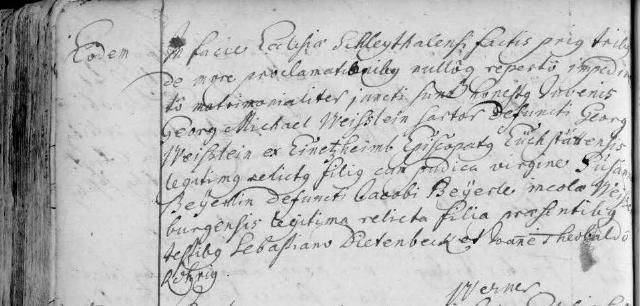 Eodem In facie Ecclesiæ Schleythalensi factis priq tribq
de more proclamationibq nullöq reperto impedim
tö matrimonialiter juncti sunt honestq Juvenis
Georg Michael Weisstein sartor defuncti Georg
Weisstein ex Einetzheimb Episcopatq Eüchstättensis
legitimq relictq filiq cum pudica virgine Susana
Beÿerlin defuncti Jacobi Beÿerle incolæ
burgensis legitima relicta filia præsentibq
testibq Sebastiano Dietenbeck et Theobaldo
Röhrig.
Werner